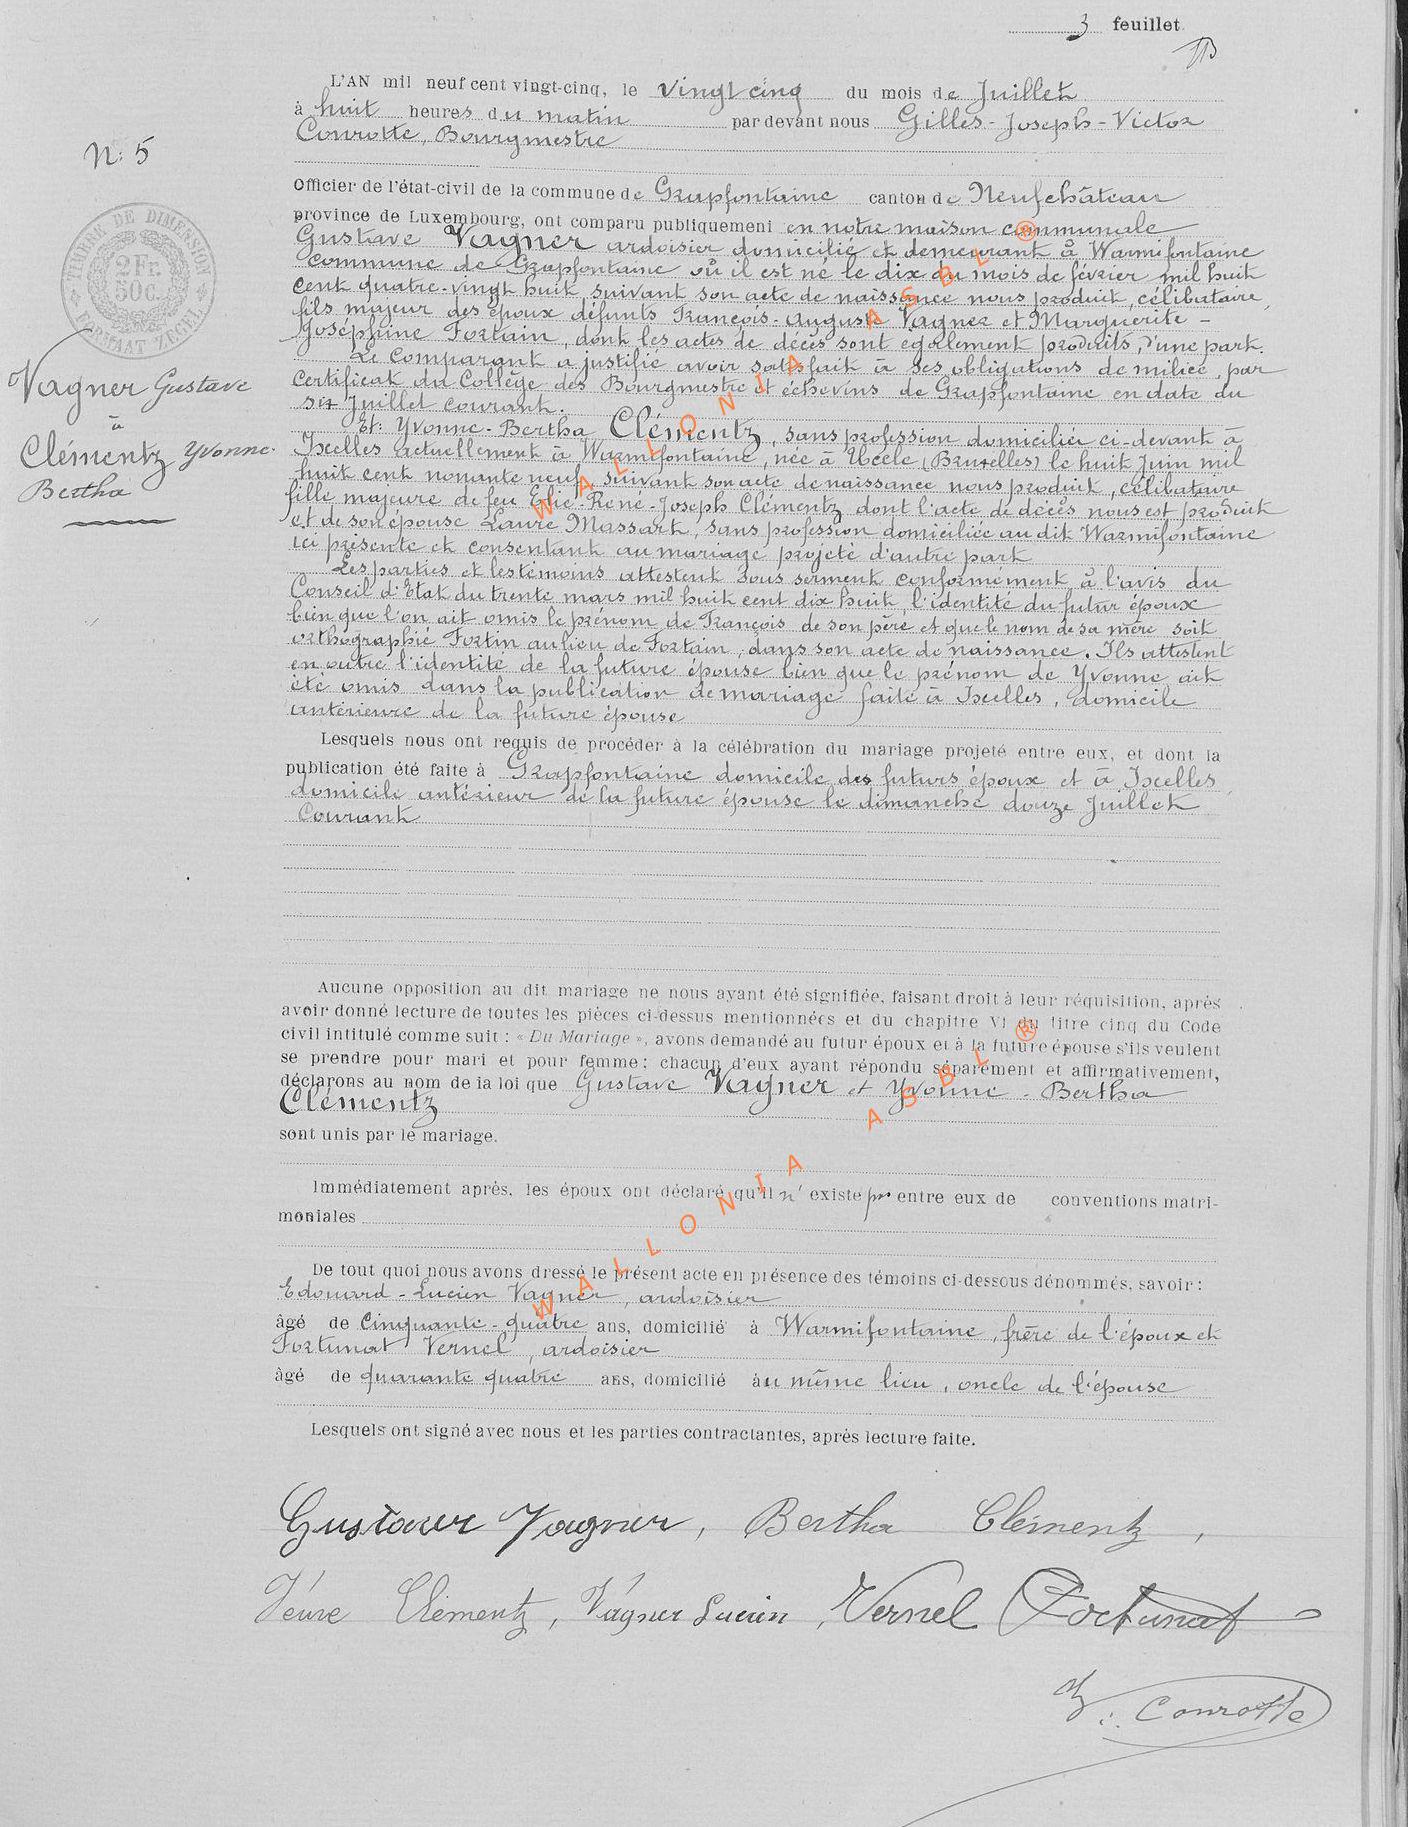 3 feuillet
L'AN mil neuf cent vingt-cinq, le vingt cinq du mois de Juillet
à huit heures du matin par devant nous Gilles-Joseph-Victor
Conrotte, Bourgmestre
N: 5
Officier de l'état-civil de la commune de Grapfontaine canton de Neufchâteau
province de Luxembourg, ont comparu publiquement en notre maison communale
Gustave Vagner ardoisier domicilié et demeurant à Warmifontaine
commune de Grapfontaine où il est né le dix du mois de février mil huit
cent quatre-vingt huit suivant son acte de naissance nous produit, célibataire,
fils majeur des époux défunts François-Auguste Vagner et Marguerite-
Joséphine Fortain, dont les actes de décès sont également produits, d'une part.
Le Comparant a justifié avoir satisfait à ses obligations de milice, par
certificat du Collège des Bourgmestre et échevins de Grapfontaine en date du
six Juillet courant.
Et: Yvonne-Bertha Clémentz, sans profession domiciliée ci-devant à
Ixelles actuellement à Warmifontaine, née à Uccle (Bruxelles) le huit Juin mil
huit cent nonante neuf, suivant son acte de naissance nous produit, célibataire
fille majeure de feu Elie-René-Joseph Clémentz dont l'acte de décès nous est produit
et de son épouse Laure Massart, sans profession domiciliée au dit Warmifontaine
ici présente et consentant au mariage projeté d'autre part
Les parties et les témoins attestent sous serment conformément à l'avis du
Conseil d'Etat du trente mars mil huit cent dix huit, l'identité du futur époux
bien que l'on ait omis le prénom de François de son père et que le nom de sa mère soit
orthographié Fortin au lieu de Fortain, dans son acte de naissance. Ils attestent
en outre l'identité de la future épouse bien que le prénom de Yvonne ait
été omis dans la publication de mariage faite à Ixelles, domicile
antérieure de la future épouse
Vagner Gustave
à
Clémentz Yvonne-
Bertha
Lesquels nous ont requis de procéder à la célébration du mariage projeté entre eux, et dont la
publication été faite à Grapfontaine domicile des futurs époux et à Ixelles,
domicile antérieur de la future épouse le dimanche douze Juillet
Courant
Aucune opposition au dit mariage ne nous ayant été signifiée, faisant droit à leur réquisition, après
avoir donné lecture de toutes les pièces ci-dessus mentionnées et du chapitre VI du titre cinq du Code
civil intitulé comme suit : « Du Mariage », avons demandé au futur époux et à la future épouse s'ils veulent
se prendre pour mari et pour femme: chacun d'eux ayant répondu séparément et affirmativement,
déclarons au nom de la loi que Gustave Vagner et Yvonne-Bertha
Clémentz
sont unis par le mariage.
Immédiatement après, les époux ont déclaré qu'il n'existe pas entre eux de conventions matri-
moniales
De tout quoi nous avons dressé le présent acte en présence des témoins ci-dessous dénommés, savoir :
Edouard-Lucien Vagner, ardoisier
âgé de Cinquante-quatre ans, domicilié à Warmifontaine, frère de l'époux et
Fortunat Vernel, ardoisier
âgé de quarante quatre ans, domicilié au même lieu, oncle de l'épouse
Lesquels ont signé avec nous et les parties contractantes, après lecture faite.
Gustave Vagner, Bertha Clémentz,
Veuve Clémentz, Vagner Lucien, Vernel Fortunat
V. Conrotte
TIMBRE DE DIMENSION
2 Fr.
50c.
FORMAAT ZEGEL
WALLONIA ASBL®
WALLONIA ASBL®